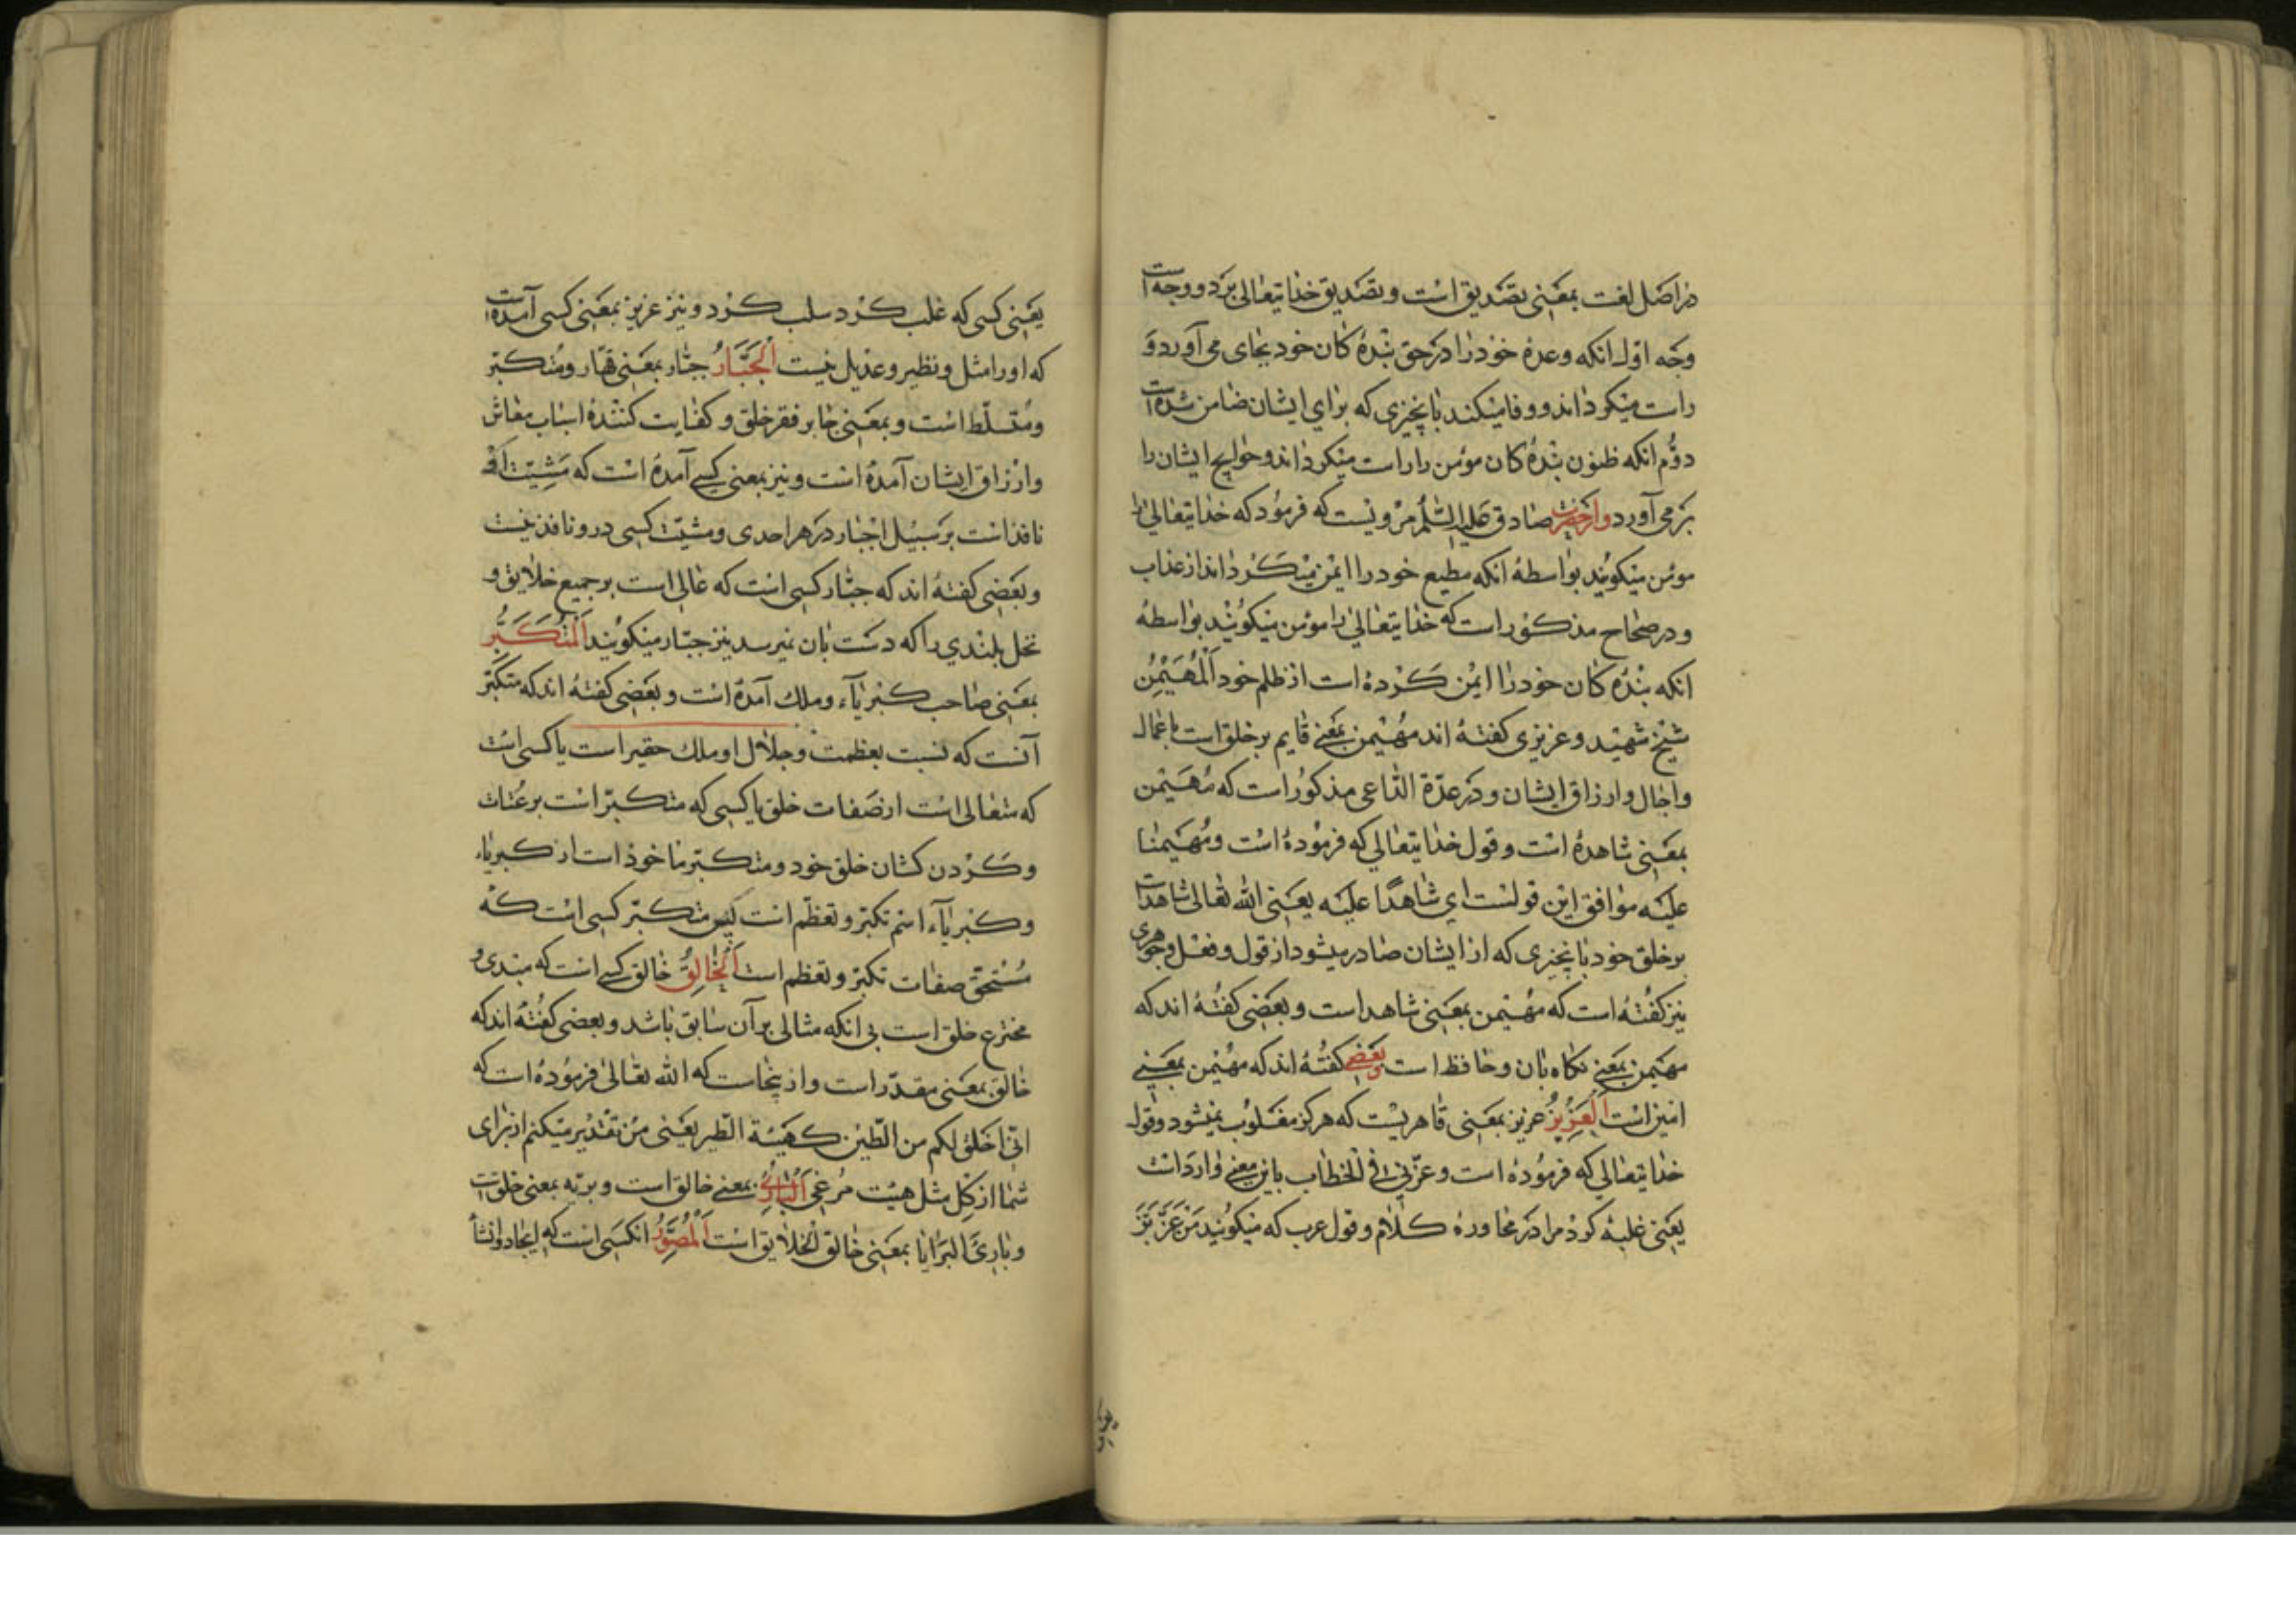 در اصل لغت بمعنی تصدیق است و تصدیق خدایتعالی بر دو وجه است
وجه اول انکه وعده خود را در حق بنده کان خود بجای می آورد و
راست میکرداند و وفا میکند بانچیزی که برای ایشان ضامن شده است
دوم انکه ظنون بنده کان مؤمن را راست میکرداند و حوایج ایشان را
بر می آورد و از حضرت صادق علیه السلام مرویست که فرمود که خدایتعالی را
مؤمن میکویند بواسطهٔ انکه مطیع خود را ایمن میکرداند از عذاب
و در صحاح مذکور است که خدایتعالی را مؤمن میکویند بواسطهٔ
انکه بنده کان خود را ایمن کرده است از ظلم خود اَلْمُهَیْمِنُ
شیخ شهید و عزیزی کفته اند مهیمن بمعنی قایم بر خلق است باعمال
و اجال و ارزاق ایشان و در عدّة الداعی مذکور است که مُهَیْمن
بمعنی شاهده است و قول خدایتعالی که فرموده است و مُهَیمنا
علیه موافق این قولست ای شاهدًا علیه یعنی الله تعالی شاهد است
بر خلق خود بانچیزی که از ایشان صادر میشود از قول و فعل و جوهری
نیز کفته است که مهیمن بمعنی شاهد است و بعضی کفته اند که
مهیمن بمعنی نکاه بان و حافظ است و بعضی کفته اند که مهیمن بمعنی
امین است اَلْعَزِیزُ عزیز بمعنی قاهریست که هرکز مغلوب نمیشود و قول
خدایتعالی که فرموده است و عزّنی فی الخطاب باین معنی وارد است
یعنی غلبه کرد مرا در محاورهٔ کلام و قول عرب که میکویند مَنْ عَزَّ بَزَّ
یعنی کسی که غلب کرد سلب کرد و نیز عزیز بمعنی کسی آمده است
که او را مثل و نظیر و عدیل نیست اَلْجَبَّارُ جبّار بمعنی قهّار و متکبّر
و متسلّط است و بمعنی جابر فقر خلق و کفایت کنندهٔ اسباب معاش
و ارزاق ایشان آمده است و نیز بمعنی کسی آمده است که مَشِیّت او
نافذ است بر سبیل اجبار در هر احدی و مشیّت کسی در و نافذ نیست
و بعضی کفته اند که جبّار کسی است که عالی است بر جمیع خلایق و
نخل بلندی را که دست بان نمیرسد نیز جبّار میکویند اَلْمُتَکَبِّرُ
بمعنی صاحب کبریآء و ملک آمده است و بعضی کفته اند که متکبّر
آنست که نسبت بعظمت و جلال او ملک حقیر است یا کسی است
که متعالی است از صفات خلق یا کسی که متکبّر است بر عُتات
و کردن کشان خلق خود و متکبّر ماخوذ است از کبریاء
و کبریآء اسم تکبّر و تعظّم است پس متکبّر کسی است که
مستحق صفات تکبّر و تعظّم است اَلْخَالِقُ خالق کسی است که مبدی و
مخترع خلق است بی انکه مثالی بر آن سابق باشد و بعضی کفته اند که
خالق بمعنی مقدّر است و ازینجاست که الله تعالی فرموده است که
انّی اخلق لکم من الطّین کهیئة الطّیر یعنی من تقدیر میکنم از برای
شما از کِل مثل هیئت مرغی اَلْبَارِئُ بمعنی خالق است و بریّه بمعنی خلق است
و بارئ البرایا بمعنی خالق الخلایق است اَلْمُصَوِّرُ انکسی است که ایجاد و انشأ